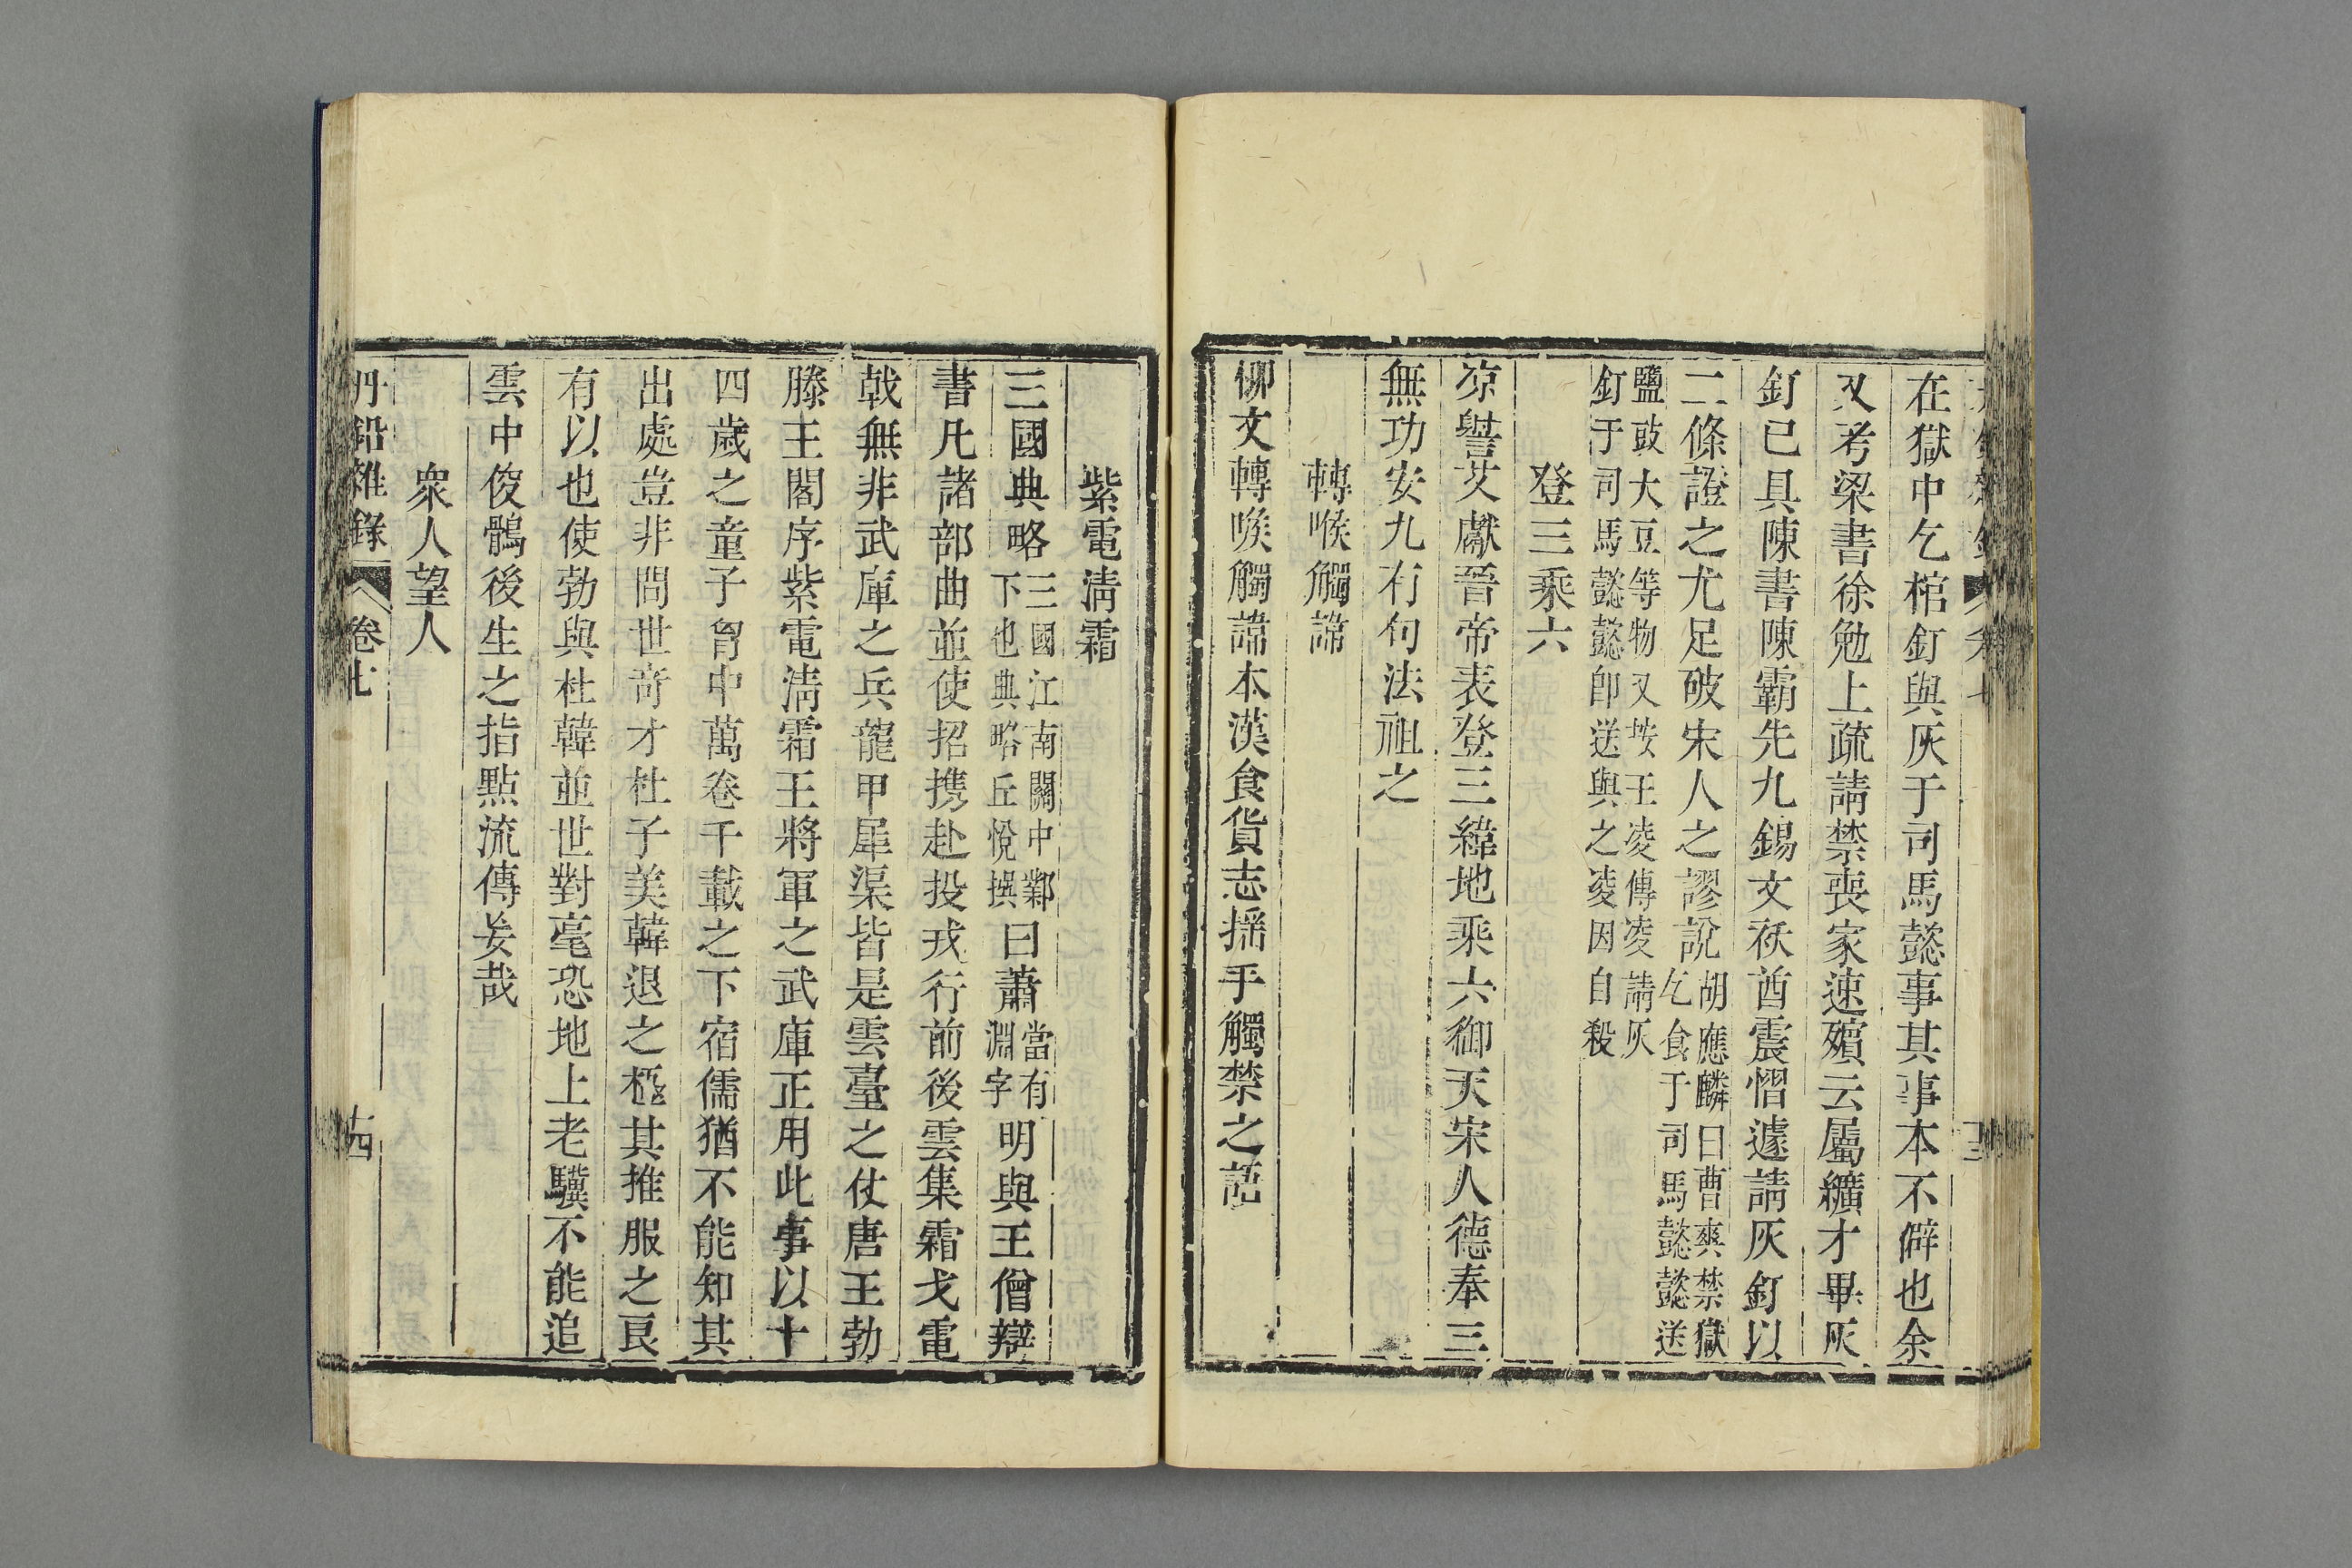 在獄中乞棺釘與灰于司馬懿事其事本不僻也余
又考梁書徐勉上疏請禁喪家速殯云屬纊才畢灰
釘已具陳書陳霸先九錫文祅酋震慴遽請灰釘以
二條證之尤足破宋人之謬說胡應麟曰曹爽禁獄乞食于司馬懿懿送
鹽豉大豆等物又按王凌傳凌請灰釘于司馬懿懿卽送與之凌因自殺
登三乘六
凉譽艾獻晉帝表登三緯地乘六御天宋人德奉三
無功安九有句法祖之
轉喉觸諱
柳文轉喉觸諱本漢食貨志搖手觸禁之語
紫電淸霜
三國典略三國江南關中鄴下也典略丘悅撰曰蕭當有淵字明與王僧辯
書凡諸部曲並使招携赴投戎行前後雲集霜戈電
戟無非武庫之兵龍甲犀渠皆是雲臺之仗唐王勃
滕王閣序紫電淸霜王將軍之武庫正用此事以十
四歲之童子胷中萬卷千載之下宿儒猶不能知其
出處豈非問世奇才杜子美韓退之極其推服之良
有以也使勃與杜韓並世對毫恐地上老驥不能追
雲中俊鶻後生之指點流傳妄哉
衆人望人
丹鉛雜錄 卷七 十四